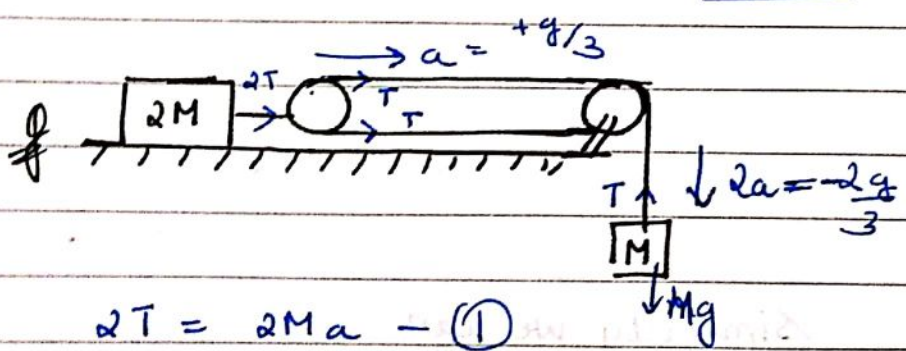 a = +g/3
2T
2M
T
T
T
2a = -2g/3
M
Mg
2T = 2Ma - ①